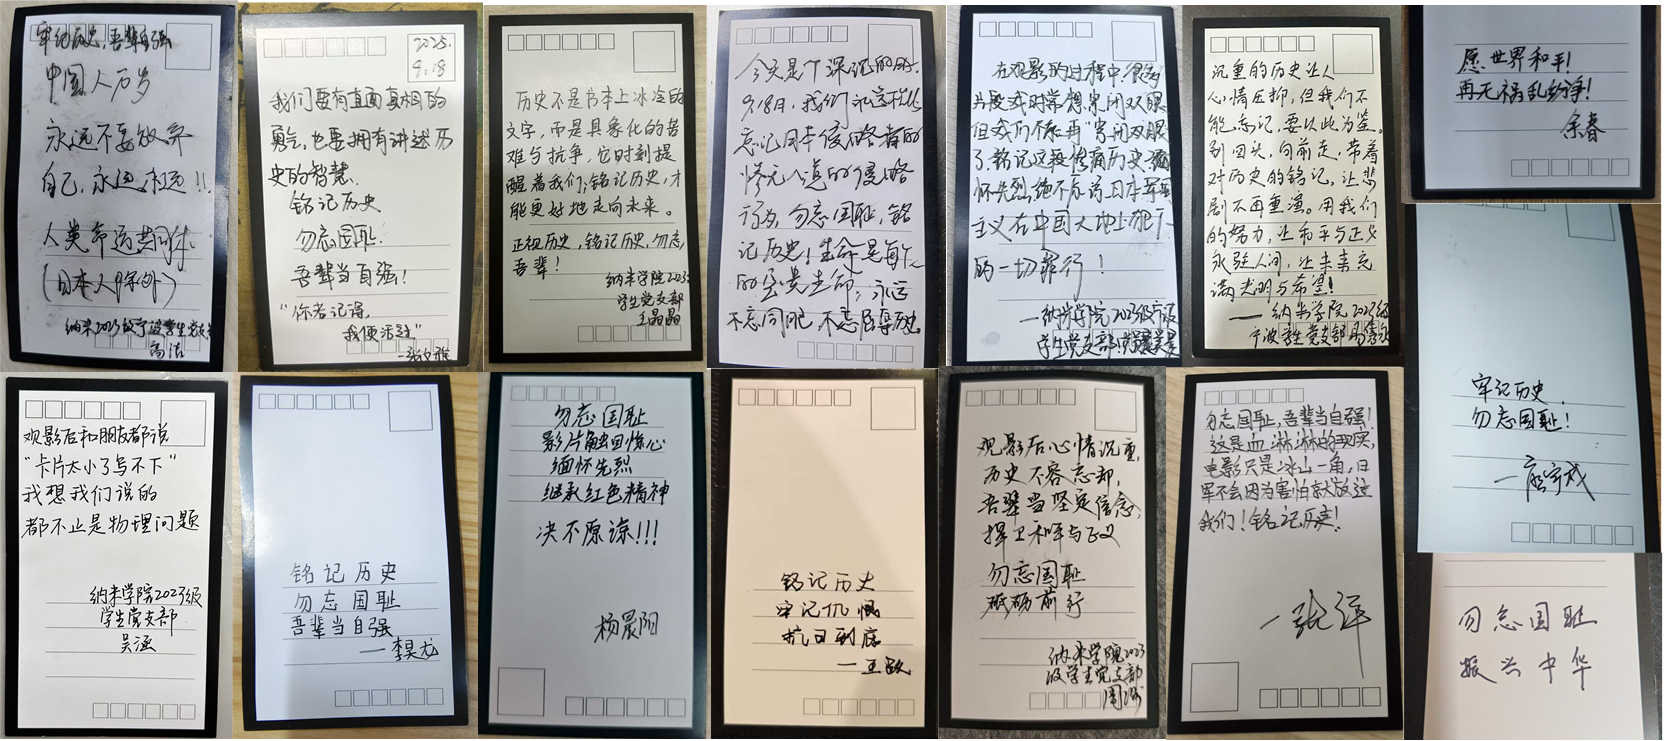 牢记历史，吾辈自强
中国人万岁
永远不要放弃
自己，永远永远!!
人类命运共同体
(日本人除外)
纳米2023级宁波学生党支部
高洁
2025.
9.18
我们要有直面真相的
勇气，也要拥有讲述历
史的智慧.
铭记历史
勿忘国耻.
吾辈当自强!
"你若记得,
我便活过"
历史不是书本上冰冷的
文字，而是具象化的苦
难与抗争，它时刻提
醒着我们：铭记历史，才
能更好地走向未来。
正视历史，铭记历史，勿忘
吾辈！
纳米学院2023
学生党支部
王晶晶
今天是个深沉的时
9.18日，我们永远不能
忘记日本侵略者的
惨无人道的侵略
行为，勿忘国耻，铭
记历史！生命是每个人
的宝贵生命，永远
不忘国耻，不忘屈辱历史
在观影的过程中很多
片段我时常想要闭双眼
但我们不能再"紧闭双眼"
了，铭记这段伤痛历史，缅
怀先烈，绝不原谅日本军国
主义在中国大地上犯下
的一切罪行！
—纳米学院2023级宁波
学生党支部
沉重的历史让人
心情压抑，但我们不
能忘记，要以此为鉴。
别回头，向前走，带着
对历史的铭记，让悲
剧不再重演。用我们
的努力，让和平与正义
永驻人间，让未来充
满光明与希望！
—纳米学院2023级
宁波学生党支部
愿世界和平!
再无祸乱纷争!
余春
观影后和朋友都说
"卡片太小了写不下"
我想我们说的
都不止是物理问题
纳米学院2023级
学生党支部
吴涵
铭记历史
勿忘国耻
吾辈当自强
—李昊龙
勿忘国耻
影片触目惊心
缅怀先烈
继承红色精神
决不原谅!!!
杨晨阳
铭记历史
牢记仇恨
抗日到底
观影后心情沉重，
历史不容忘却，
吾辈当坚定信念，
捍卫和平与正义
勿忘国耻
砥砺前行
纳米学院2023
级学生党支部
勿忘国耻，吾辈当自强！
这是血淋淋的现实，
电影只是冰山一角，日
军不会因为害怕就放过
我们！铭记历史！
牢记历史.
勿忘国耻!
勿忘国耻
振兴中华